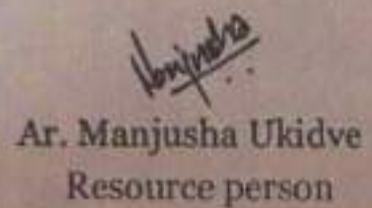 Manjusha
Ar. Manjusha Ukidve
Resource person